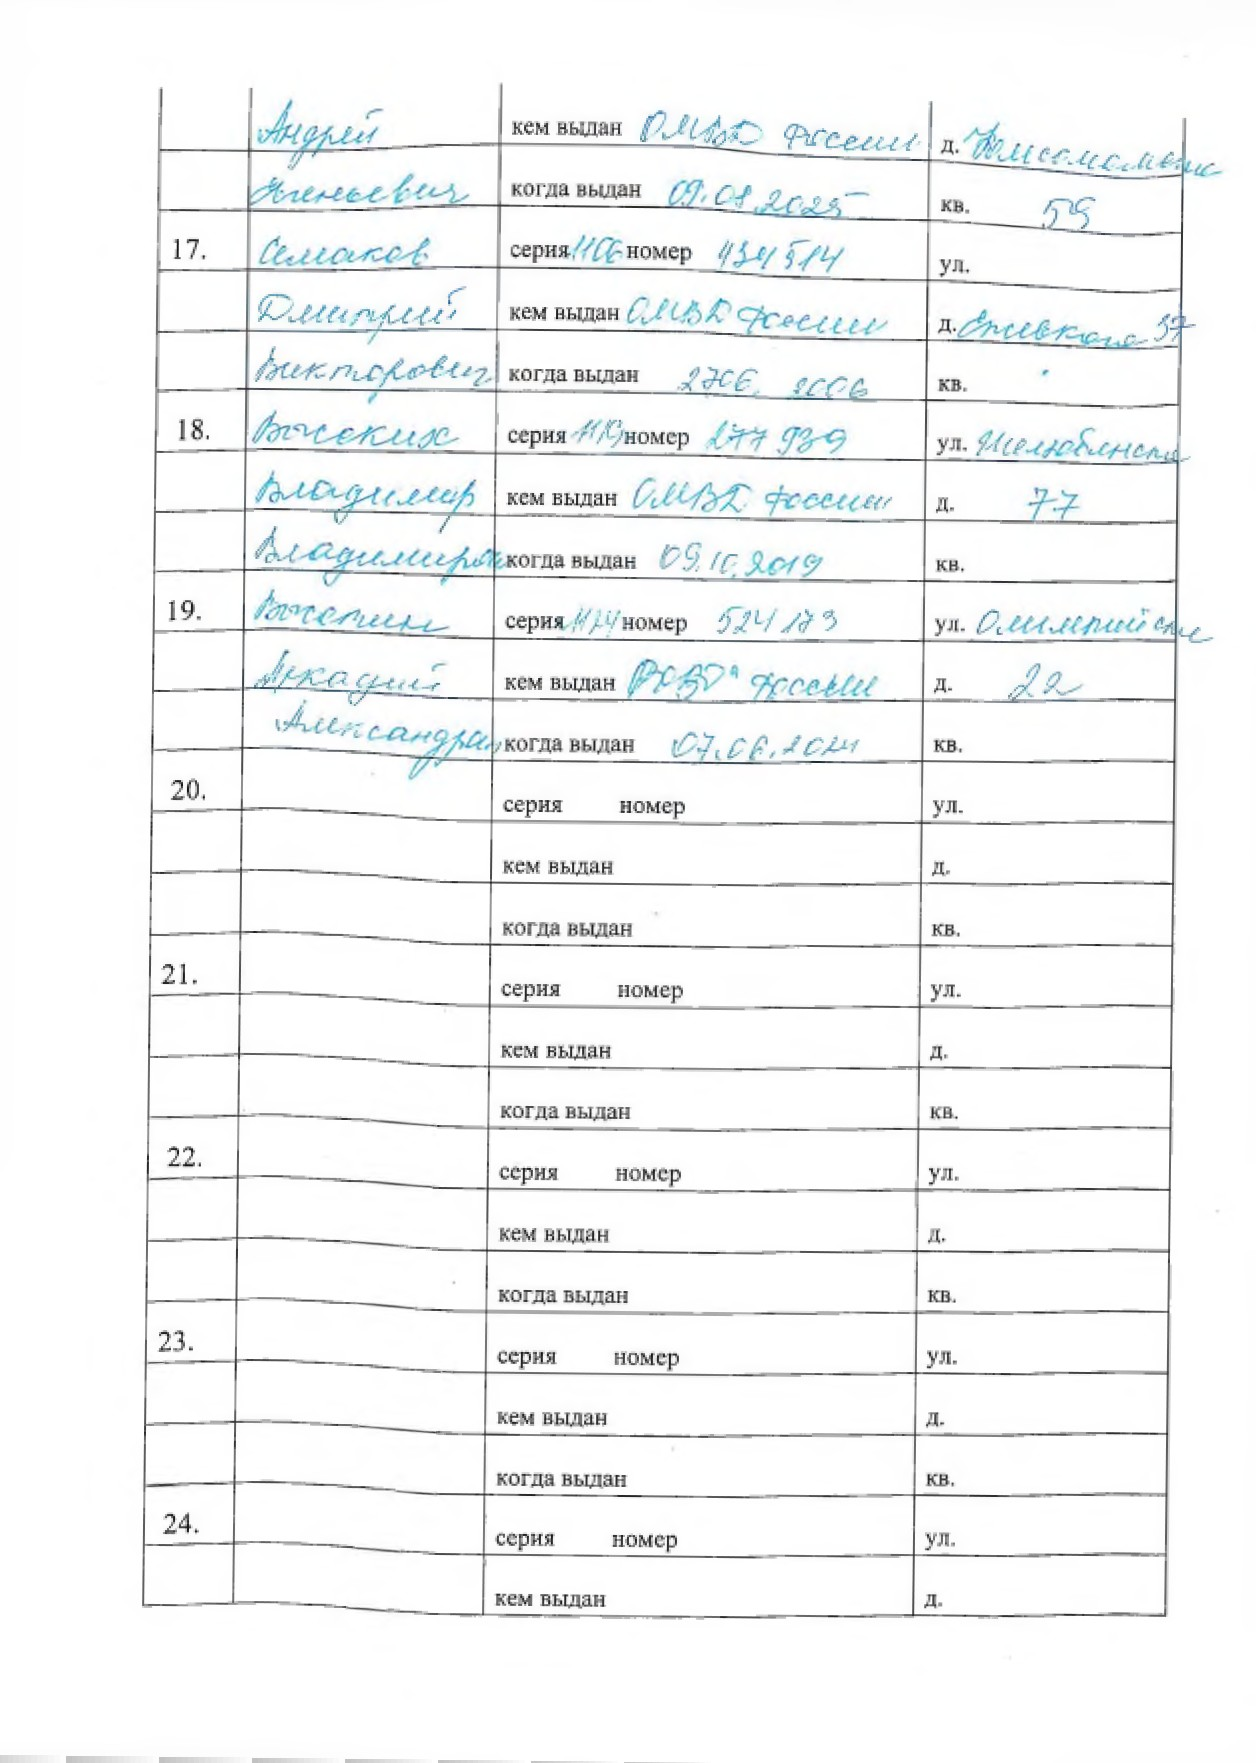 Андрей кем выдан ОМВД России д. Комсомольск
когда выдан 09.08.2025 кв. 59
17. Семаков серия 1106 номер 434514 ул.
Дмитрий кем выдан ОМВД России д. 37
Викторович когда выдан 2706. 2006 кв.
18. серия номер 277 939 ул.
Владимир кем выдан ОМВД России д. 77
Владимиров когда выдан 09.10.2019 кв.
19. серия 1124 номер 524173 ул. Олимпийская
Аркадий кем выдан России д. 22
Александров когда выдан 07.06.2024 кв.
20. серия номер ул.
кем выдан д.
когда выдан кв.
21. серия номер ул.
кем выдан д.
когда выдан кв.
22. серия номер ул.
кем выдан д.
когда выдан кв.
23. серия номер ул.
кем выдан д.
когда выдан кв.
24. серия номер ул.
кем выдан д.